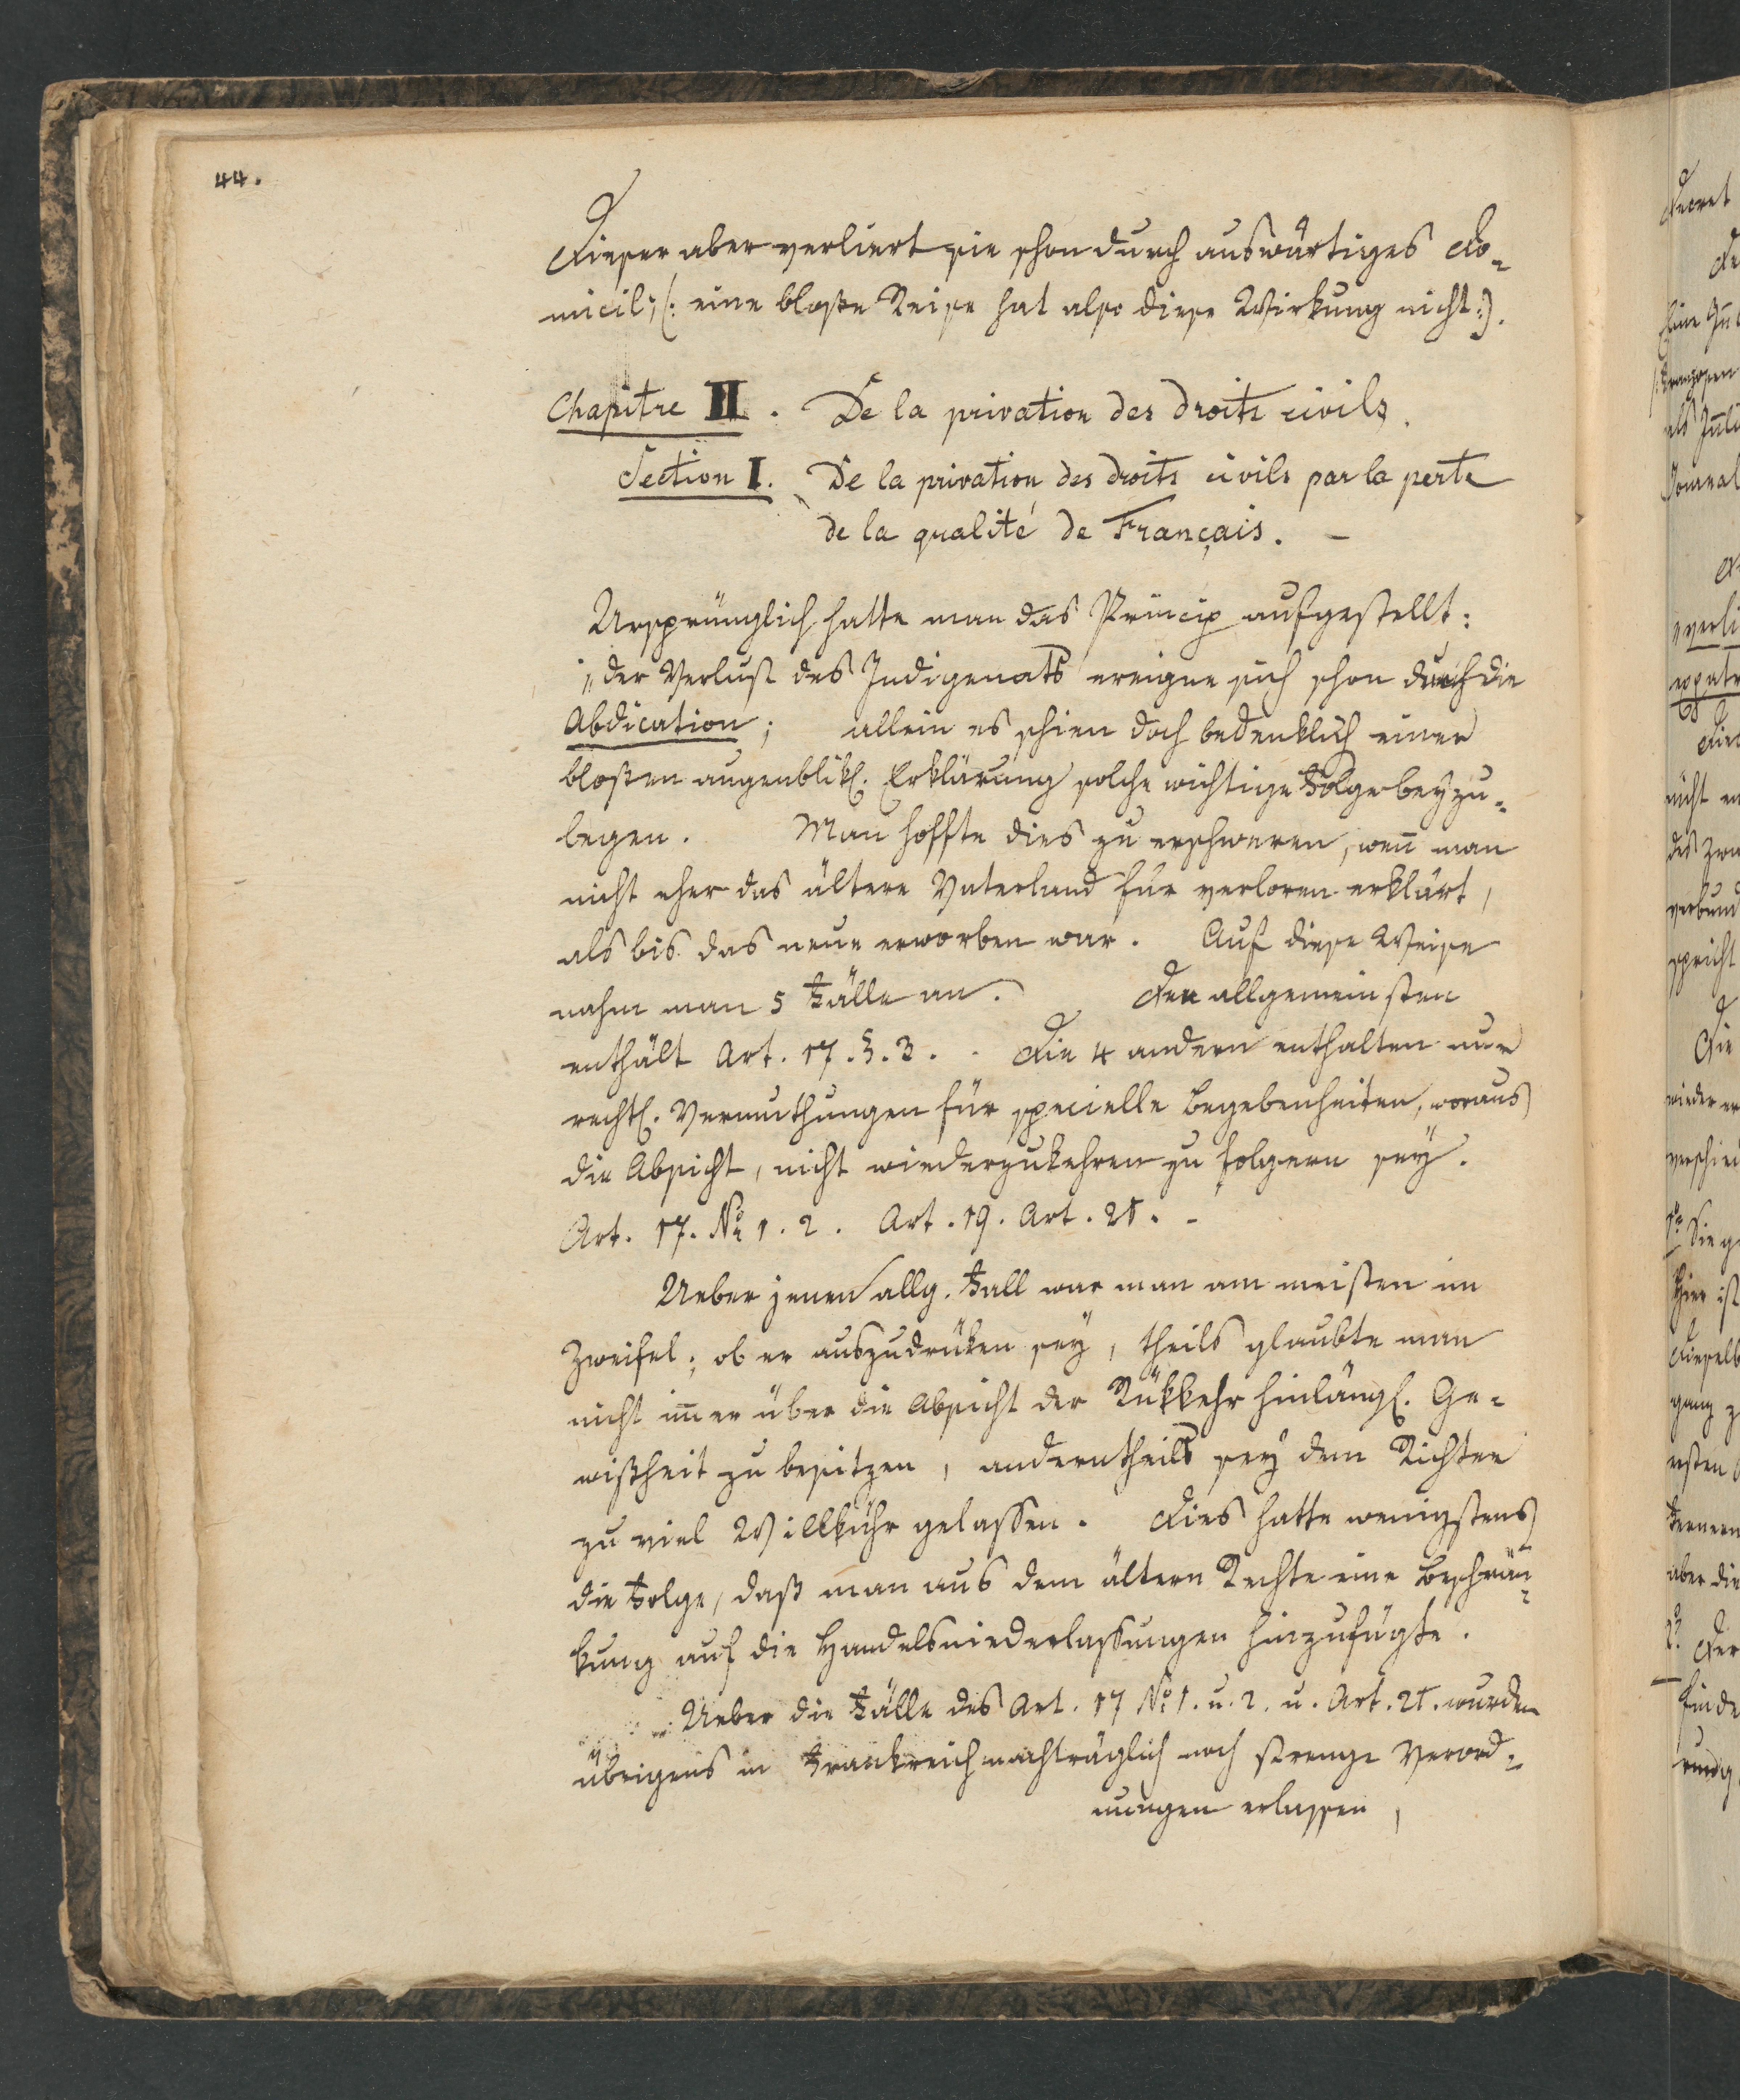 44.
Dieser aber verliert sie schon durch auswärtiges Do-
micil; (: eine bloße Reise hat also diese Wirkung nicht :).
Chapitre II. De la privation des droits civils.
Section I. De la privation des droits civils par la perte
de la qualité de Français. –
Ursprünglich hatte man das Princip aufgestellt:
„der Verlust des Indigenats ereigne sich schon durch die
Abdication; allein es schien doch bedenklich einer
bloßen augenblikl. Erklärung solche wichtige Folge beyzu-
legen. Man hoffte dies zu erschweren, weñ man
nicht eher das ältere Vaterland für verloren erklärt,
als bis das neue erworben war. Auf diese Weise
nahm man 5 Fälle an. Den allgemeinsten
enthält Art. 17. §. 3. Die 4 andern enthalten nur
rechtl. Vermuthungen für specielle Begebenheiten, woraus
die Absicht, nicht wiederzukehren zu folgern sey.
Art. 17. № 1. 2. Art. 19. Art. 21. –
Ueber jenen allg. Fall war man am meisten im
Zweifel; ob er auszudrüken sey, theils glaubte man
nicht im̃er über die Absicht der Rükkehr hinlängl. Ge-
wißheit zu besitzen, anderntheils sey dem Richter
zu viel Willkühr gelassen. Dies hatte wenigstens
die Folge, daß man aus dem ältern Rechte eine Beschrän-
kung auf die Handelsniederlassungen hinzufügte.
Ueber die Fälle des Art. 17 № 1. u. 2. u. Art. 21. wurden
übrigens in Frankreich nachträglich noch strenge Verord-
nungen erlassen,